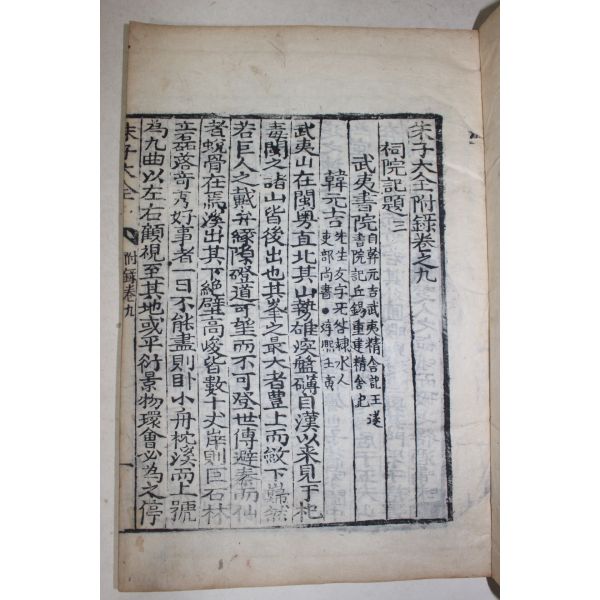 朱子大全附錄卷之九
祠院記題三
武夷書院 自韓元吉武夷精舍記王遂
書院記丘錫重建精舍記
韓元吉 先生文字无咎隷水人
吏部尚書●淳熙壬寅
武夷山在閩粤直北其山勢雄㳫盤礴自漢以来見于祀
毒聞之諸山皆後出也其峯之最大者豊上而歛下巋然
若巨人之戴弁緣隙磴道可望而不可登世傳避秦而仙
者蛻骨在焉溪出其下絶壁高峻皆數十丈岸則巨石林
立磊落竒秀好事者一日不能盡則卧小舟枕溪而上號
為九曲以左右顧視至其地或平衍景物環會必為之停
朱子大全 附錄卷九